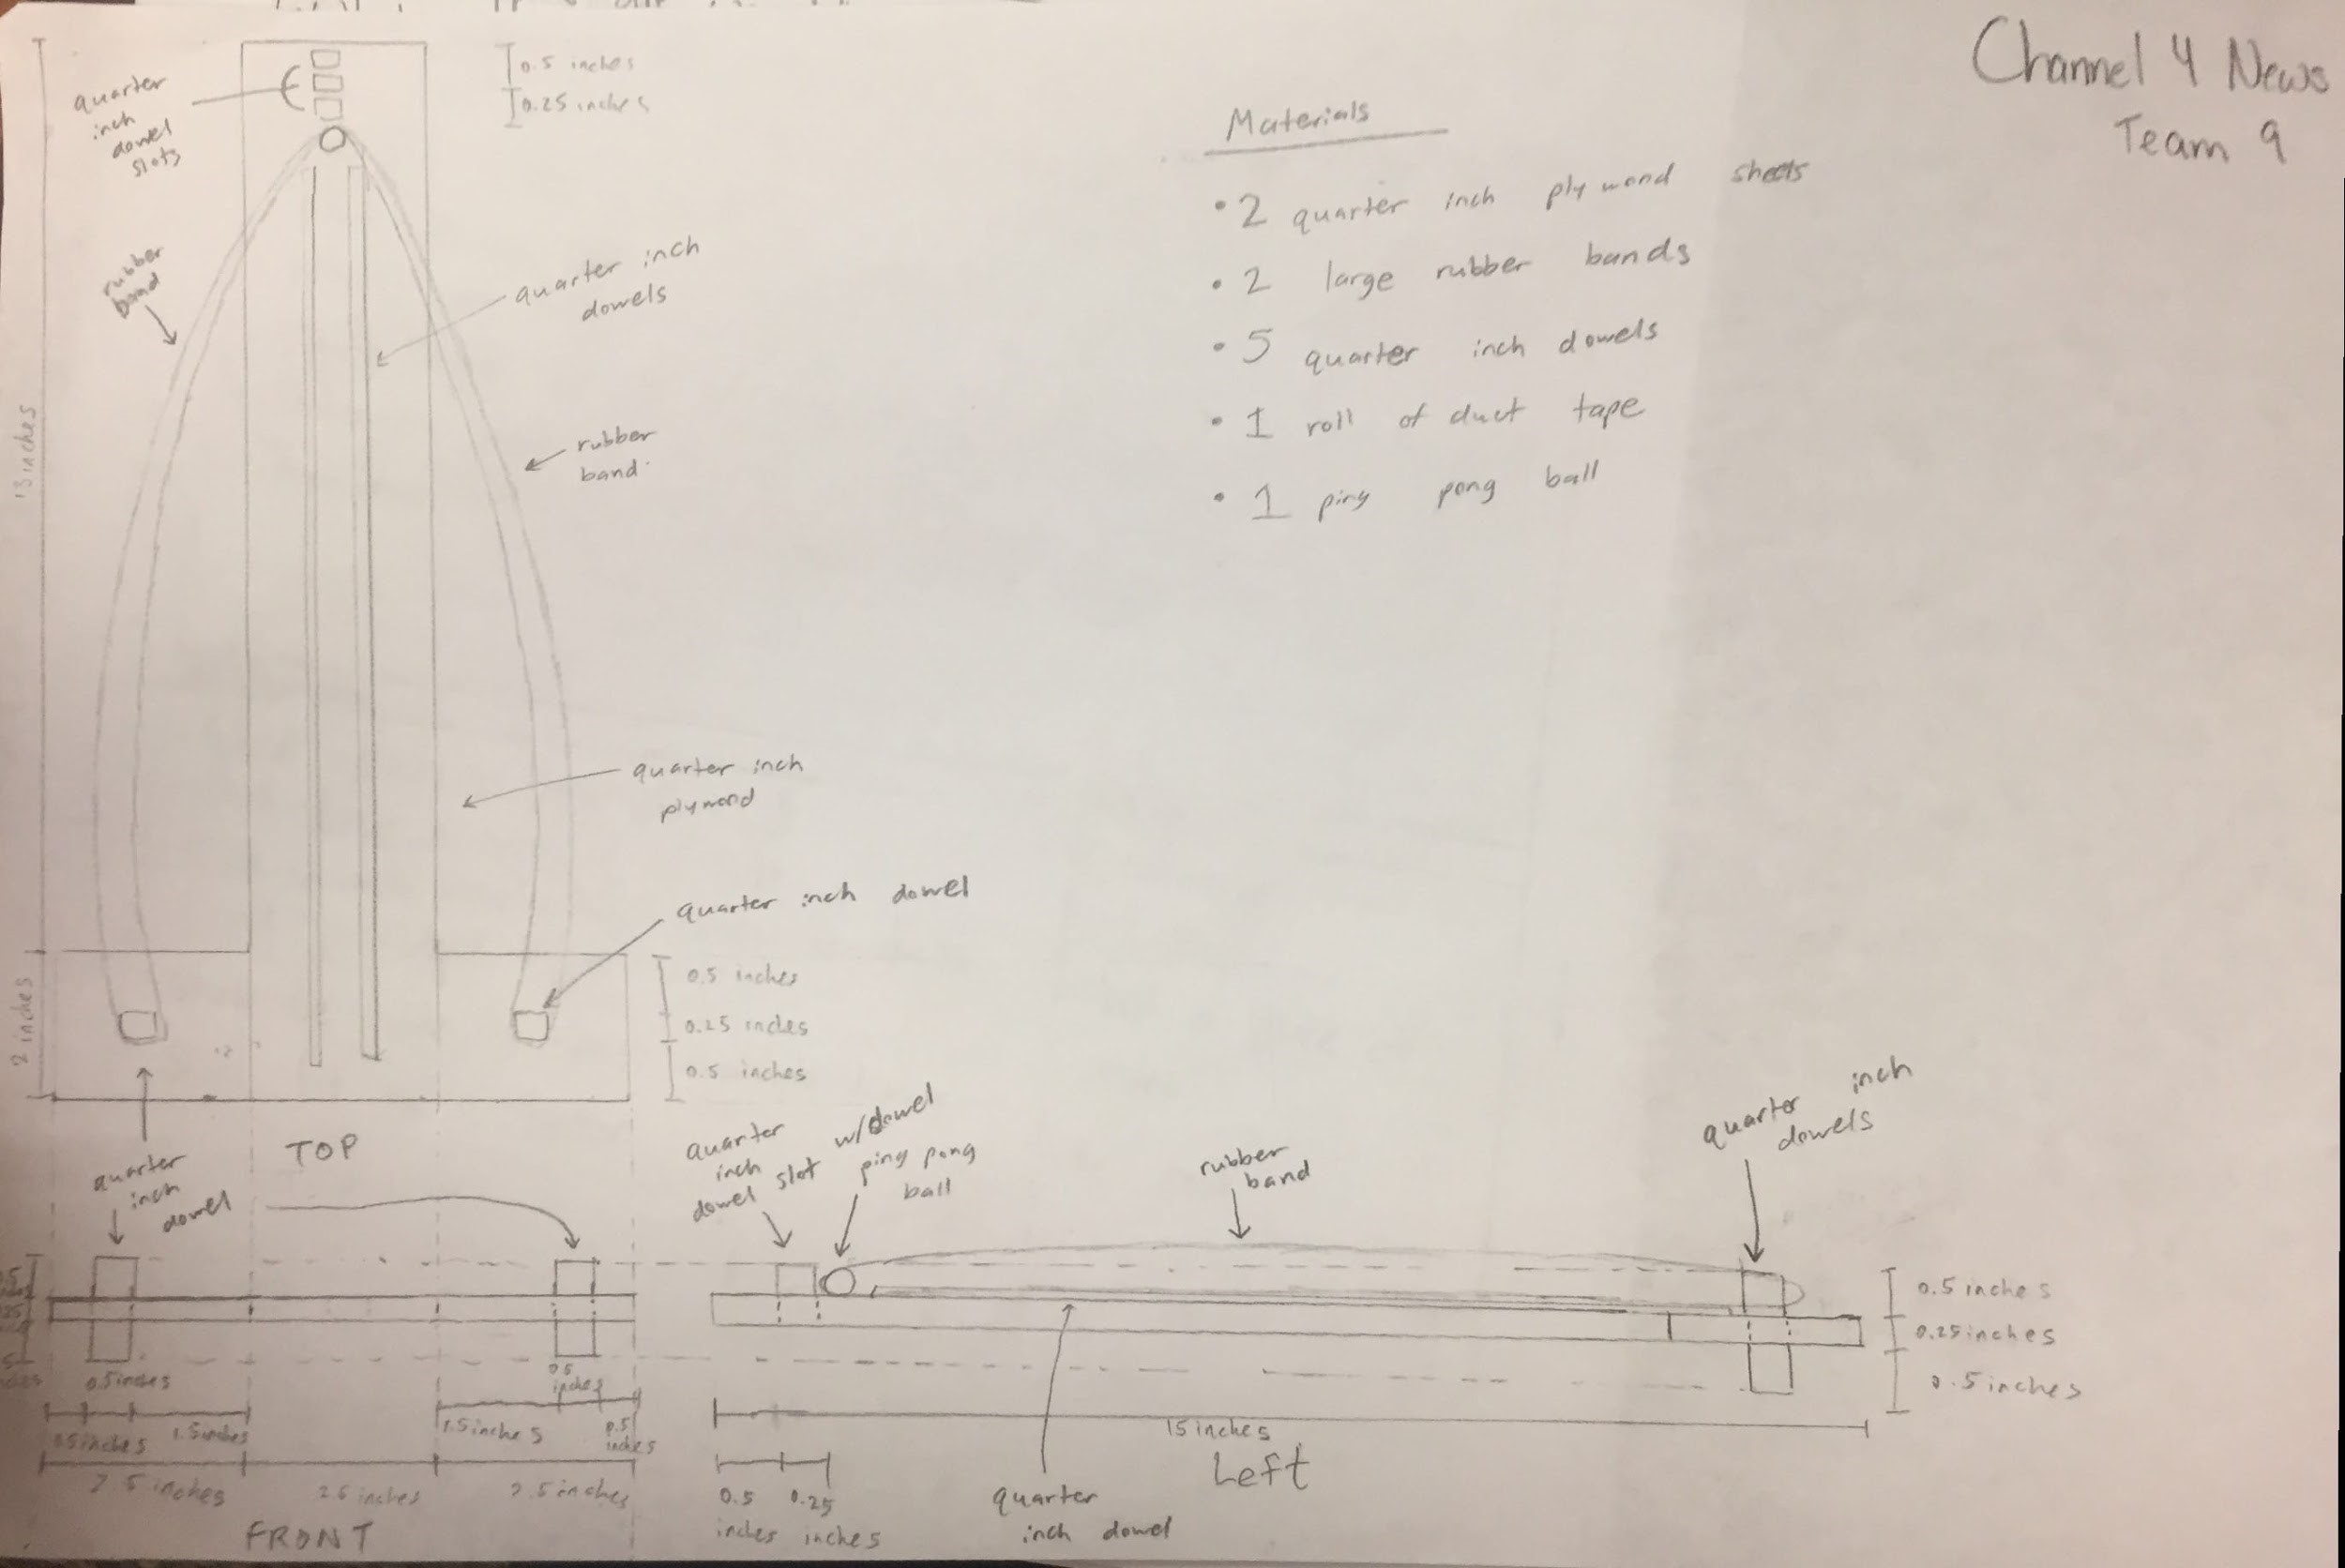 Channel 4 News
Team 9
Materials
• 2 quarter inch plywood sheets
• 2 large rubber bands
• 5 quarter inch dowels
• 1 roll of duct tape
• 1 ping pong ball
quarter
inch
dowel
slots
0.5 inches
0.25 inches
rubber
band
quarter inch
dowels
13 inches
rubber
band
quarter inch
plywood
quarter inch dowel
2 inches
0.5 inches
0.25 inches
0.5 inches
TOP
quarter
inch
dowel
0.5 inches
0.5 inches
1.5 inches
0.5
inches
1.5 inches
0.5
inches
2.5 inches
2.5 inches
2.5 inches
FRONT
quarter
inch
dowel slot w/dowel
ping pong
ball
rubber
band
quarter inch
dowels
0.5 inches
0.25 inches
0.5 inches
15 inches
Left
0.5 0.25
inches inches
quarter
inch dowel